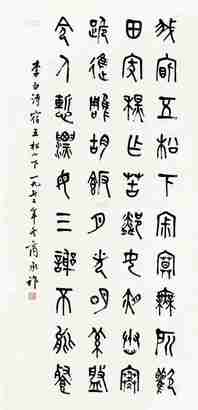 我宿五松下寂寥無所歡
田家秋作苦鄰女夜舂寒
跪進雕胡飯月光明素盤
令人慚漂母三謝不能餐
李白詩宿五松山下一九七年冬商承祚